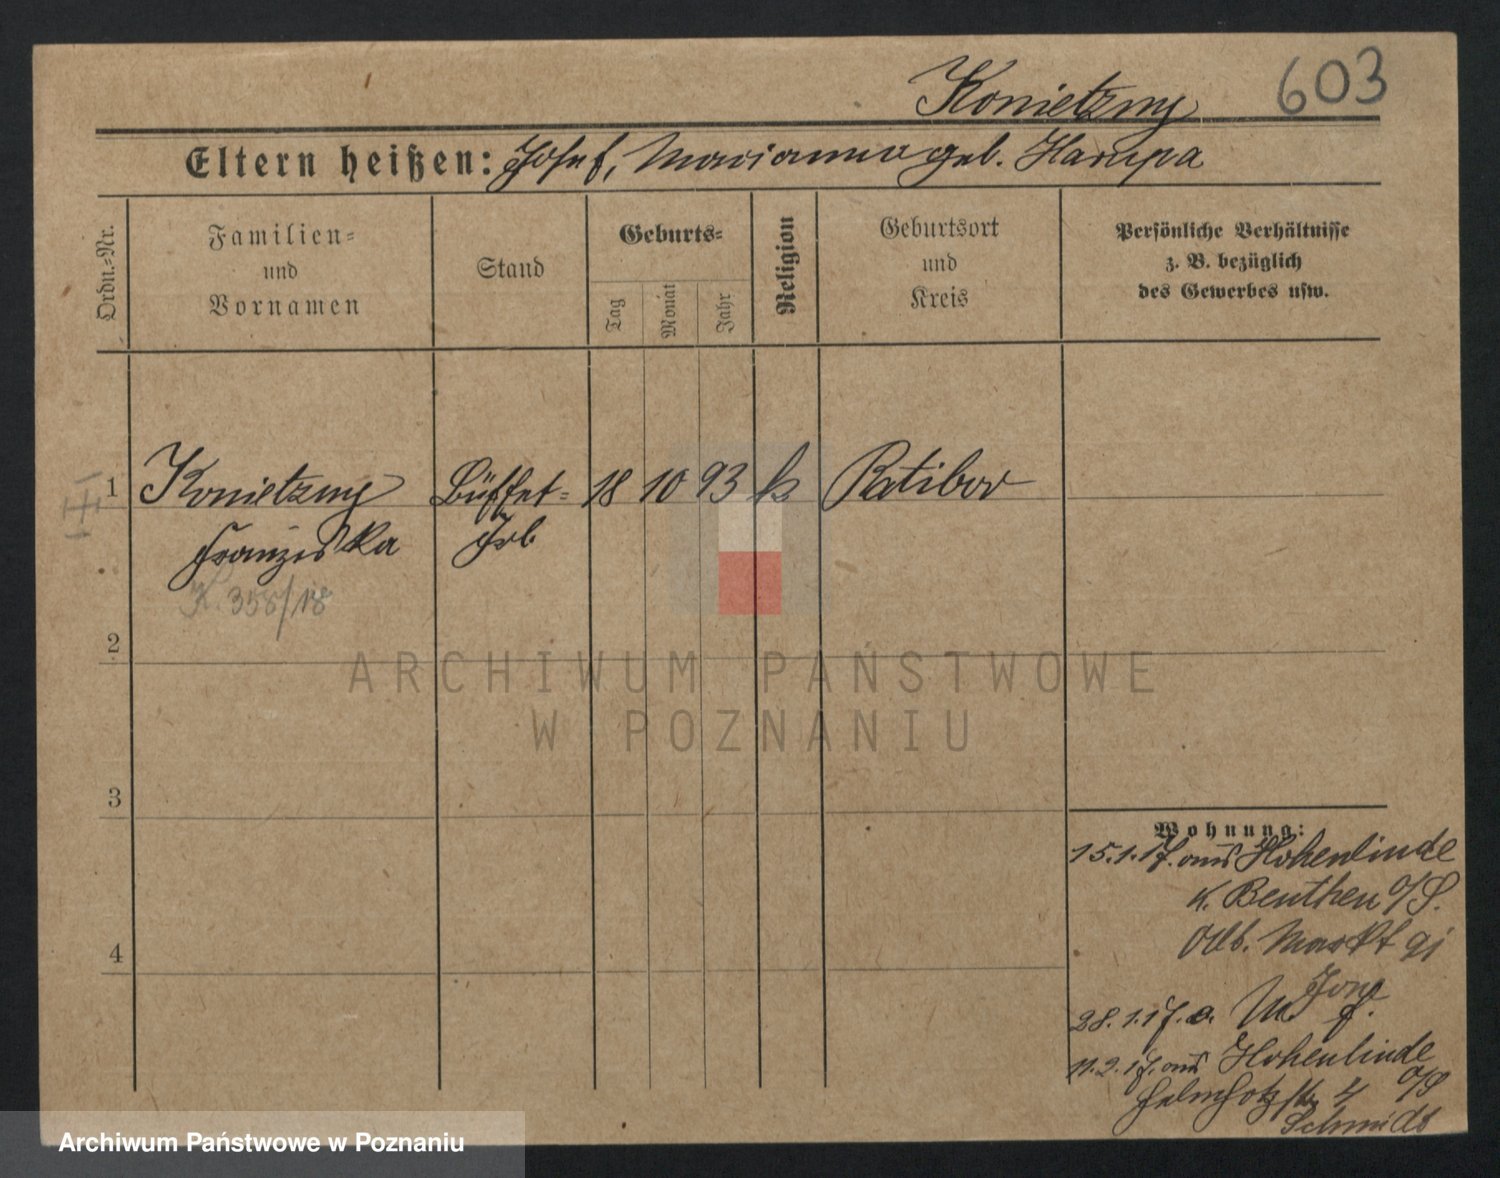 Konietzny
603
Eltern heißen: Josef, Marianna geb. Harupa
Ordn.-Nr.
Familien-
und
Vornamen
Stand
Geburts-
Tag
Monat
Jahr
Religion
Geburtsort
und
Kreis
Persönliche Verhältnisse
z. B. bezüglich
des Gewerbes usw.
1 Konietzny Büffet- 18 10 93 k Ratibor
Franziska Frl.
K. 358/18
2
3
4
Wohnung:
15.1.17. aus Hohenlinde
K. Beuthen O/S.
Markt 91
28.1.17.
11.2.17. aus Hohenlinde
O/S
Helmholtzstr 4
Schmidt
ARCHIWUM PAŃSTWOWE
W POZNANIU
Archiwum Państwowe w Poznaniu